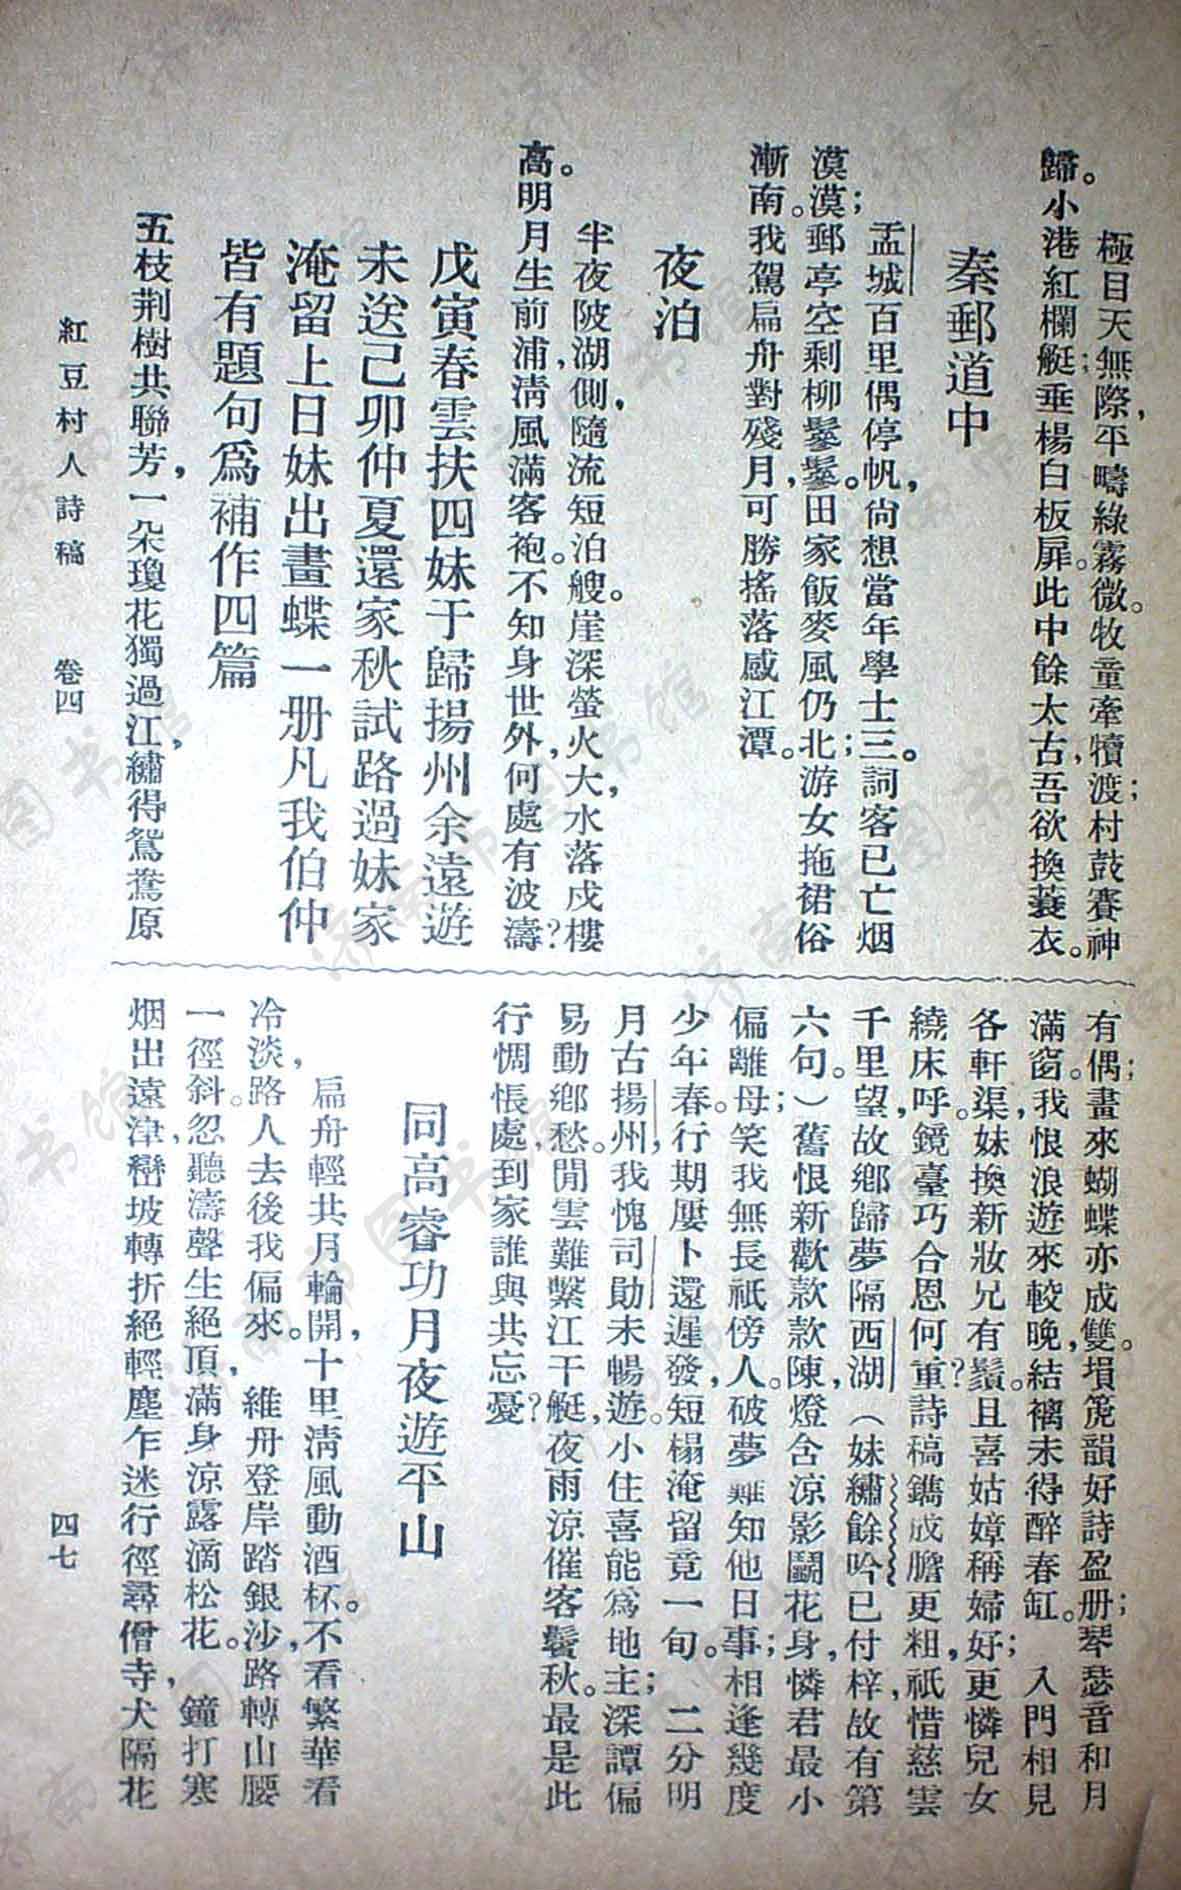 極目天無際，平疇綠霧微。牧童牽犢渡；村鼓賽神
歸。小港紅欄艇；垂楊白板扉。此中餘太古，吾欲換蓑衣。
秦郵道中
孟城百里偶停帆，尙想當年學士三。詞客已亡烟
漠漠；郵亭空剩柳鬖鬖。田家飯麥風仍北；游女拖裙俗
漸南。我駕扁舟對殘月，可勝搖落感江潭。
夜泊
半夜陂湖側，隨流短泊艘。崖深螢火大，水落戍樓
高。明月生前浦，清風滿客袍。不知身世外，何處有波濤？
戊寅春雲扶四妹于歸揚州余遠遊
未送己卯仲夏還家秋試路過妹家
淹留上日妹出畫蝶一册凡我伯仲
皆有題句爲補作四篇
五枝荆樹共聯芳，一朵瓊花獨過江，繡得鴛鴦原
有偶；畫來蝴蝶亦成雙。塤箎韻好詩盈册；琴瑟音和月
滿窗。我恨浪遊來較晚，結褵未得醉春缸。　入門相見
各軒渠，妹換新妝兄有鬚。且喜姑嫜稱婦好；更憐兒女
繞床呼。鏡臺巧合恩何重？詩稿鐫成膽更粗，祇惜慈雲
千里望，故鄉歸夢隔西湖（妹繡餘吟已付梓，故有第
六句。）舊恨新歡款款陳，燈含涼影鬭花身，憐君最小
偏離母；笑我無長祇傍人。破夢難知他日事；相逢幾度
少年春。行期屢卜還遲發，短榻淹留竟一旬。　二分明
月古揚州，我愧司勛未暢遊。小住喜能爲地主；深譚偏
易動鄉愁。閒雲難繫江干艇，夜雨涼催客鬢秋。最是此
行惆悵處，到家誰與共忘憂？
同高睿功月夜遊平山
扁舟輕共月輪開，十里清風動酒杯。不看繁華看
冷淡，路人去後我偏來。　維舟登岸踏銀沙，路轉山腰
一徑斜。忽聽濤聲生絕頂，滿身涼露滴松花。　鐘打寒
烟出遠津，巒坡轉折絕輕塵乍迷行徑尋僧寺，犬隔花
紅豆村人詩稿　卷四
四七